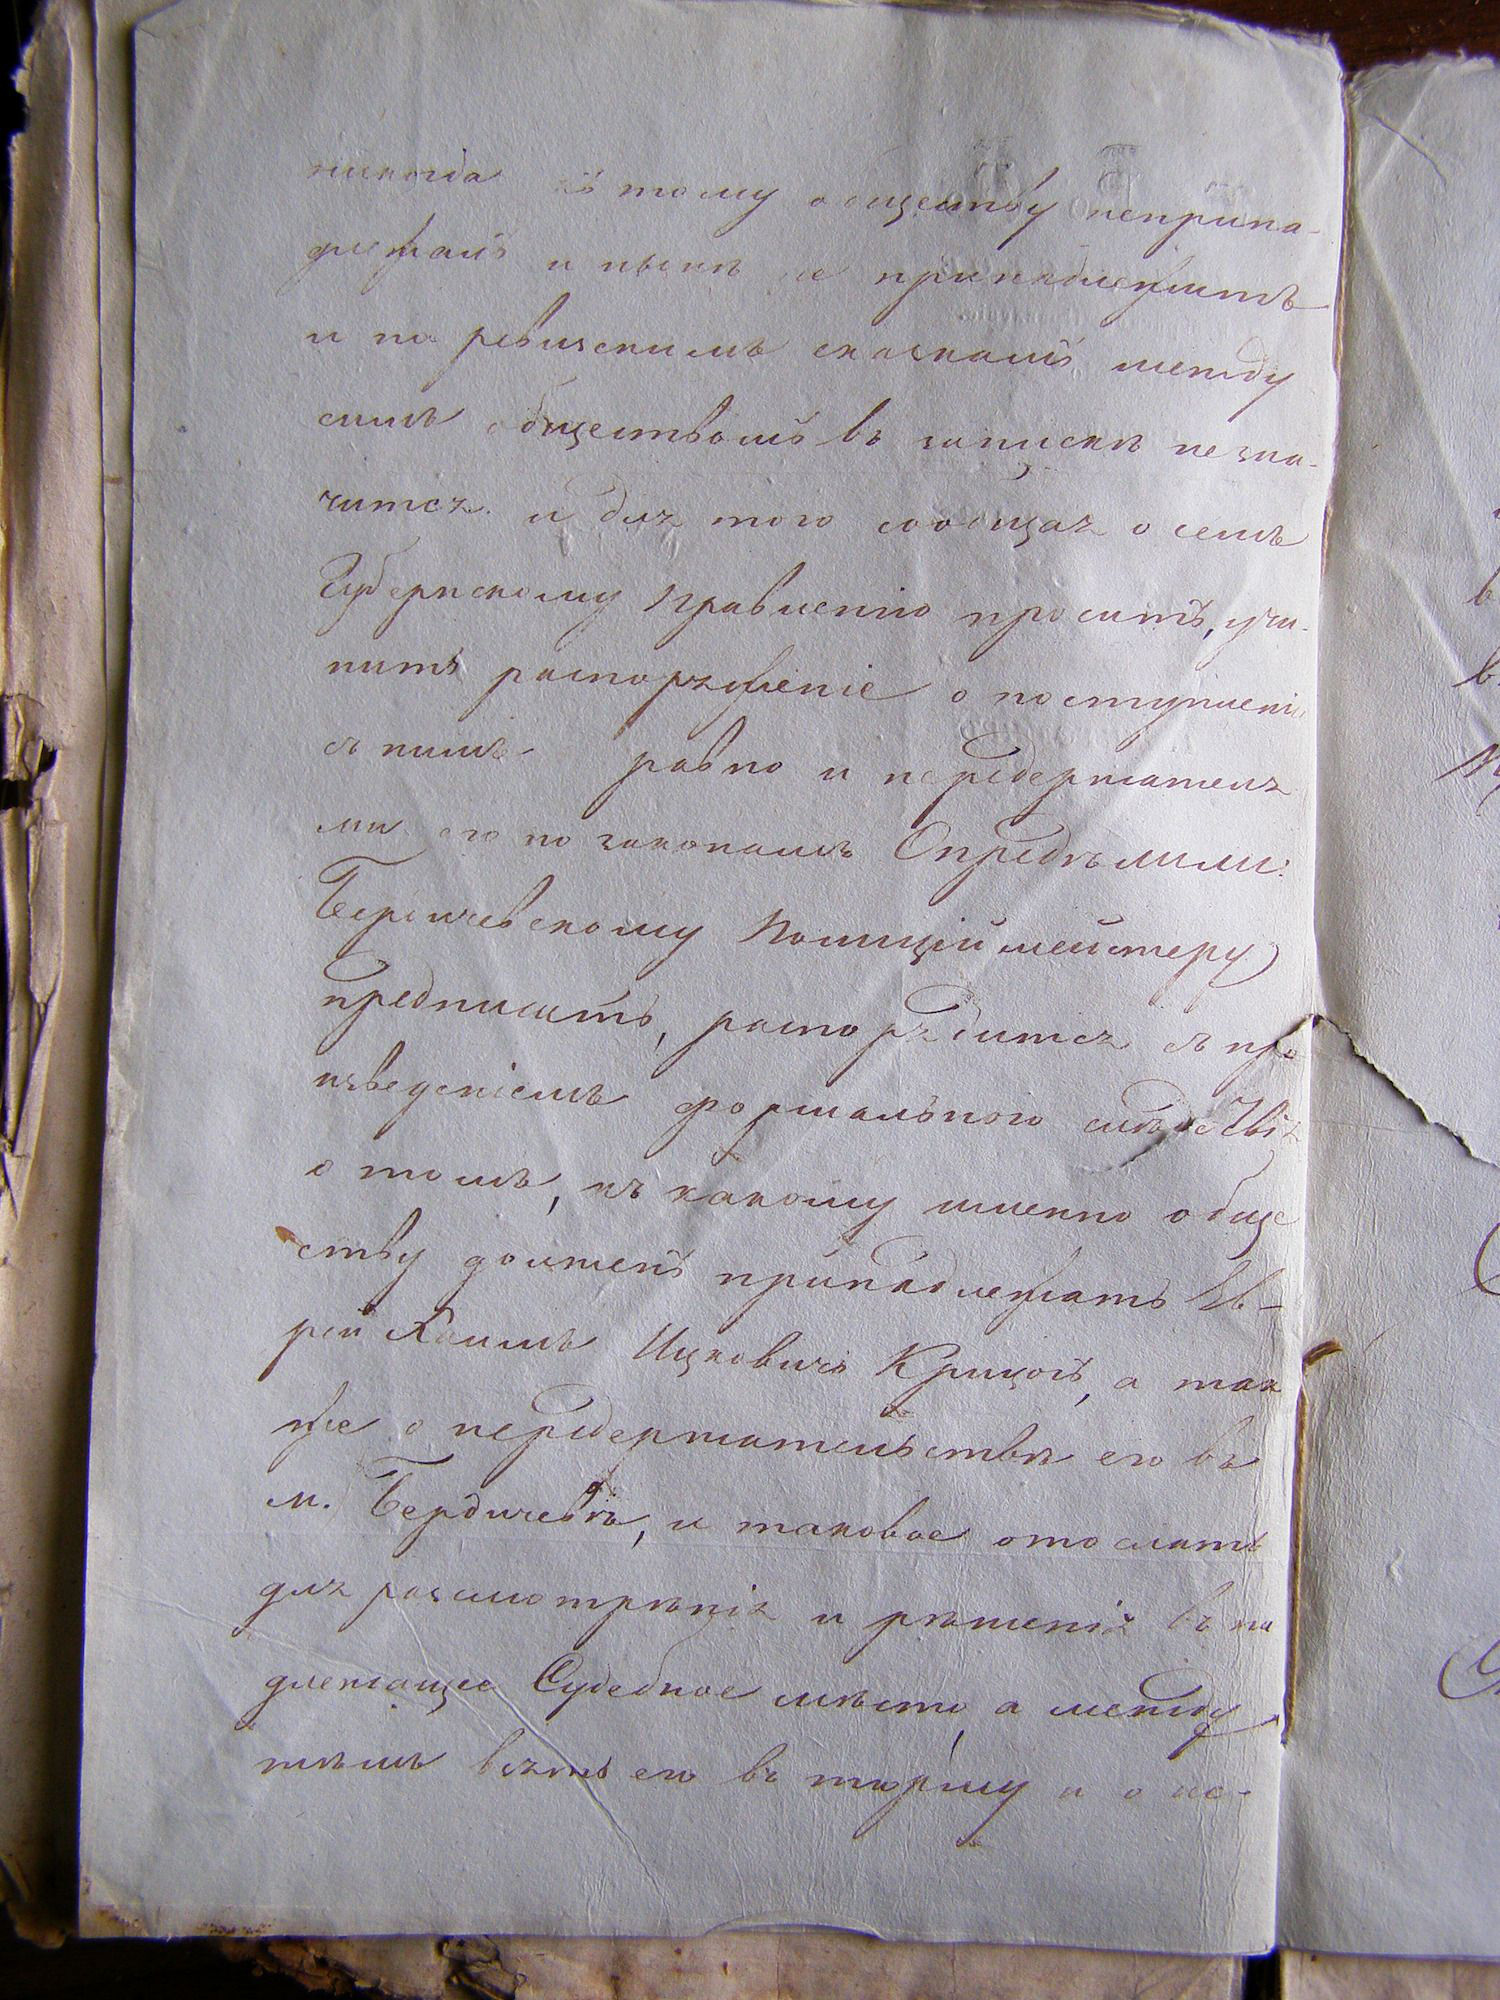 никогда къ тому обществу неприна-
длежалъ и нынѣ не принадлежитъ
и по ревизскимъ сказкамъ между
симъ обществомъ въ запискѣ не зна-
чится и для того сообщая о семъ
Губернскому Правленію проситъ, учи-
нить распоряженіе о поступленіи
съ нимъ равно и передержателя
ми его по законамъ Опредѣлили:
Бердичевскому Полиціймейстеру
предписать, распорядится съ про
изведеніемъ формальнаго слѣдствія
о томъ, къ какому именно обще
ству долженъ принадлежать Ев-
рей Хаимъ Ицковичъ а так
же о передержательствѣ его въ
м. Бердичевѣ, и таковое отослать
для разсмотрѣнія и рѣшенія въ на
длежащее Судебное мѣсто, а между
тѣмъ взять его въ тюрму и о по-